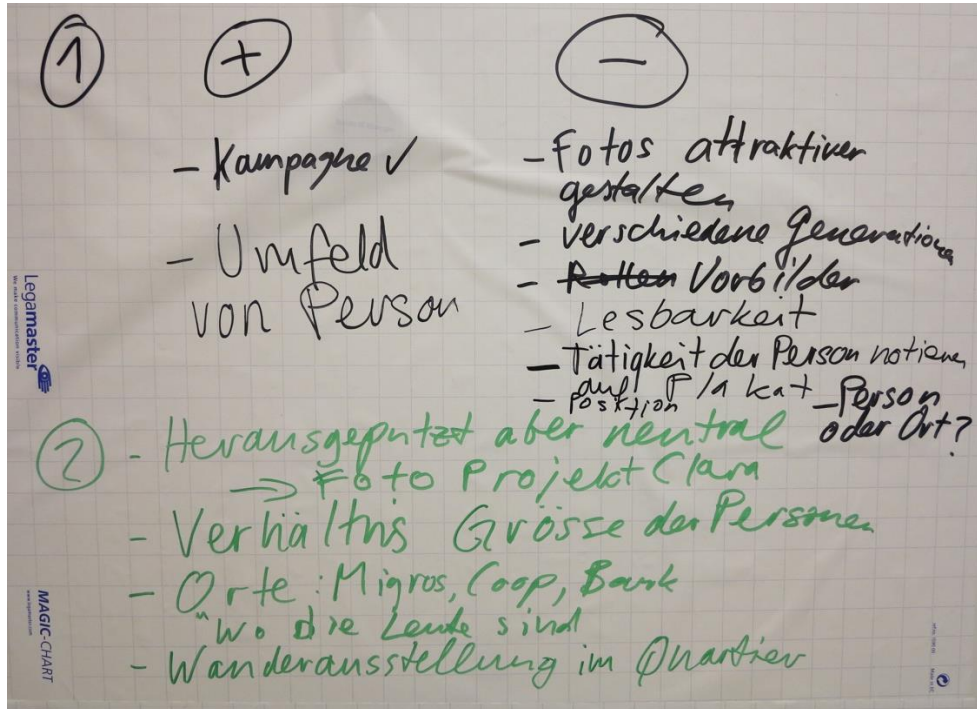 1 + −
- Kampagne ✓
- Umfeld
von Person
- Fotos attraktiver
gestalten
- verschiedene Generationen
- Rollen Vorbilder
- Lesbarkeit
- Tätigkeit der Person notieren
auf Plakat
- Position
- Person
oder Ort?
2 - Herausgeputzt aber neutral
⇒ Foto Projekt Clara
- Verhältnis Grösse der Personen
- Orte: Migros, Coop, Bank
"wo die Leute sind
- Wanderausstellung im Quartier
Legamaster
We make communication visible
MAGIC-CHART
www.legamaster.com